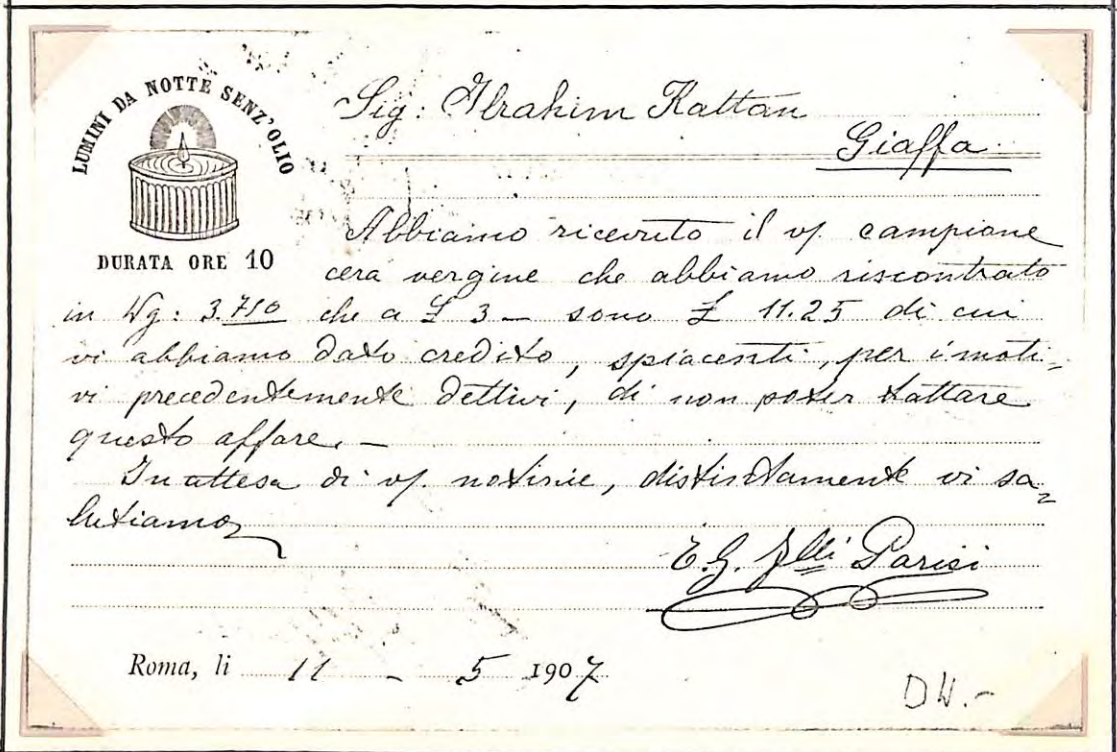 LUMINI DA NOTTE SENZ'OLIO
DURATA ORE 10
Sig: Ibrahim Kattan
Giaffa
Abbiamo ricevuto il vs. campione
cera vergine che abbiamo riscontrato
in Kg: 3.750 che a £ 3 — sono £ 11.25 di cui
vi abbiamo dato credito, spiacenti, per i moti-
vi precedentemente dettivi, di non poter trattare
questo affare. —
In attesa di vs. notizie, distintamente vi sa=
lutiamo
E. G. Flli Parisi
Roma, li 11 - 5 1907